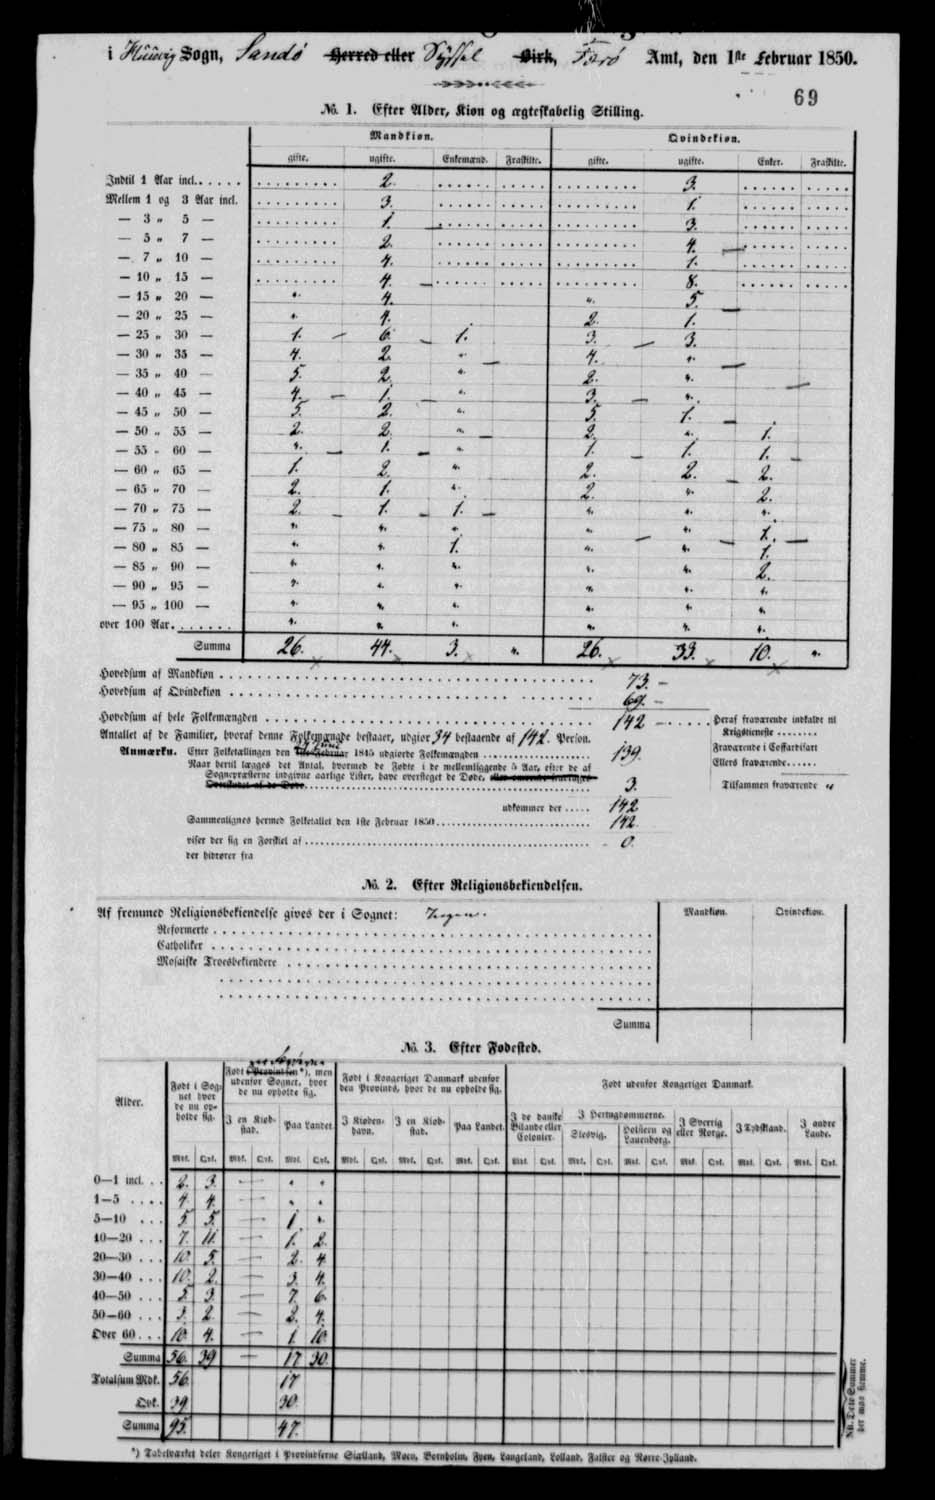 i Húsvig Sogn, Sandö Herred eller Syssel Birk, Færö Amt, den 1ste Februar 1850.
69
No. 1. Efter Alder, Kiøn og ægteskabelig Stilling.
Mandkiøn. Qvindekiøn.
gifte. ugifte. Enkemænd. Fraskilte. gifte. ugifte. Enker. Fraskilte.
Indtil 1 Aar incl. 2. 3.
Mellem 1 og 3 Aar incl. 3. 1.
— 3 „ 5 — 1. 3.
— 5 „ 7 — 2. 4.
— 7 „ 10 — 4. 1.
— 10 „ 15 — 4. 8.
— 15 „ 20 — „ 4. „ 5.
— 20 „ 25 — „ 4. 2. 1.
— 25 „ 30 — 1. 6. 1. 3. 3.
— 30 „ 35 — 4. 2. „ 4. „
— 35 „ 40 — 5. 2. „ 2. „
— 40 „ 45 — 4. 1. „ 3. „
— 45 „ 50 — 5. 2. „ 5. 1.
— 50 „ 55 — 2. 2. „ 2. „ 1.
— 55 „ 60 — „ 1. „ 1. 1. 1.
— 60 „ 65 — 1. 2. „ 2. 2. 2.
— 65 „ 70 — 2. 1. „ 2. „ 2.
— 70 „ 75 — 2. 1. 1. „ „ „
— 75 „ 80 — „ „ „ „ „ 1.
— 80 „ 85 — „ „ 1. „ „ 1.
— 85 „ 90 — „ „ „ „ „ 2.
— 90 „ 95 — „ „ „ „ „ „
— 95 „ 100 — „ „ „ „ „ „
over 100 Aar. „ „ „ „ „ „
Summa 26. 44. 3. „ 26. 33. 10. „
Hovedsum af Mandkiøn 73.
Hovedsum af Qvindekiøn 69.
Hovedsum af hele Folkemængden 142 Heraf fraværende indkaldt til
Krigstieneste
Antallet af de Familier, hvoraf denne Folkemængde bestaaer, udgiør 34 bestaaende af 142. Person.
Anmærkn. Efter Folketællingen den 1ste Februar 1845 udgiorde Folkemængden 139. Fraværende i Coffardifart
Naar hertil lægges det Antal, hvormed de Fødte i de mellemliggende 5 Aar, efter de af Ellers fraværende
Sognepræsterne indgivne aarlige Lister, have oversteget de Døde,
Overskudet af de Døde 3. Tilsammen fraværende „
udkommer der 142
Sammenlignes hermed Folketallet den 1ste Februar 1850 142.
viser der sig en Forskiel af 0.
der hidrører fra
No. 2. Efter Religionsbekiendelsen.
Af fremmed Religionsbekiendelse gives der i Sognet: Ingen. Mandkiøn. Qvindekiøn.
Reformerte
Catholiker
Mosaiske Troesbekiendere
Summa
No. 3. Efter Fødested.
Alder. Født i Sognet hvor de nu opholde sig. Født i Provindsen*), men udenfor Sognet, hvor de nu opholde sig. Født i Kongeriget Danmark udenfor den Provinds, hvor de nu opholde sig. Født udenfor Kongeriget Danmark.
I en Kiøbstad. Paa Landet. I Kiøbenhavn. I en Kiøbstad. Paa Landet. I de danske Bilande eller Colonier. I Hertugdømmerne. Slesvig. Holsteen og Lauenborg. I Sverrig eller Norge. I Tydskland. I andre Lande.
Mdk. Qvk. Mdk. Qvk. Mdk. Qvk. Mdk. Qvk. Mdk. Qvk. Mdk. Qvk. Mdk. Qvk. Mdk. Qvk. Mdk. Qvk. Mdk. Qvk. Mdk. Qvk. Mdk. Qvk.
0—1 incl. 2. 3. — „ „
1—5 4. 4. — „ „
5—10 5. 5. — 1. „
10—20 7. 11. — 1. 2.
20—30 10. 5. — 2. 4.
30—40 10. 2. — 3. 4.
40—50 5. 3. — 7. 6.
50—60 3. 2. — 2. 4.
Over 60 10. 4. — 1. 10.
Summa 56. 39 — 17 30.
Totalsum Mdk. 56. 17
Qvk. 39 30.
Summa 95. 47.
NB. Dete Summer der maa stemme.
*) Tabelværket deler Kongeriget i Provindserne Siælland, Moen, Bornholm, Fyen, Langeland, Lolland, Falster og Nørre-Jylland.